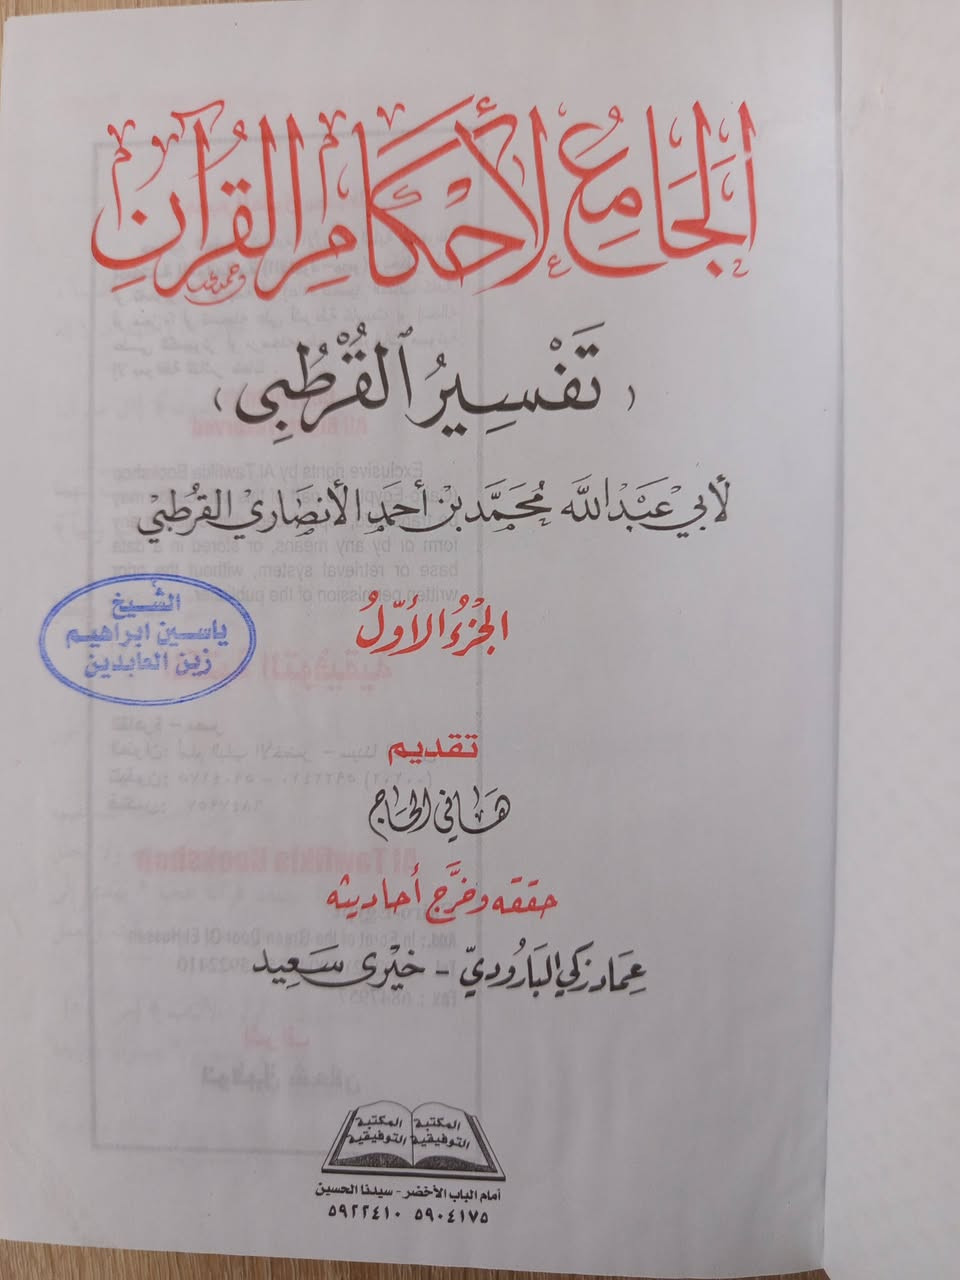 الجَامِعُ لأَحْكَامِ القُرْآنِ
(تَفْسِيرُ ٱلقُرْطُبِي)
لأبي عَبْد الله مُحَمَّد بن أحمد الأنصَاري القرطبي
الجُزءُ الأوّلُ
الشيخ
ياسين ابراهيم
زين العابدين
تقديم
هَاني الحَاج
حققه وخرَّج أحاديثه
عِمَاد زكي البَارُوديّ - خَيْرى سَعيد
المكتبة التوفيقية
المكتبة التوفيقية
أمام الباب الأخضر - سيدنا الحسين
٥٩٠٤١٧٥ ٥٩٢٢٤١٠